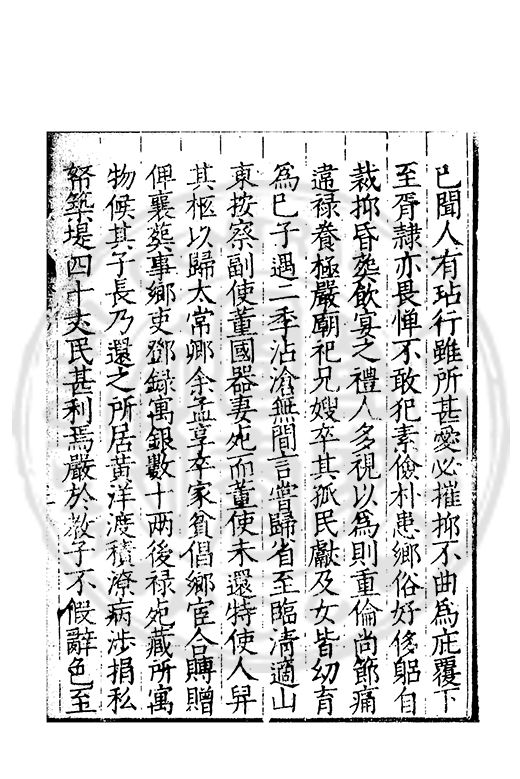 已聞人有玷行雖所甚愛必摧抑不曲為庇覆下
至胥隷亦畏憚不敢犯素儉朴患鄉俗好侈躬自
裁抑昏塟飲宴之禮人多視以為則重倫尚節痛
違禄養極嚴廟祀兄嫂卒其孤民獻及女皆幼育
為己子遇二季沾滄無間言嘗歸省至臨清適山
東按察副使董國器妻死而董使未還特使人舁
其柩以歸太常卿余孟享卒家貧倡鄉宦合賻贈
俾襄塟事鄉吏鄧録寓銀數十两後禄死藏所寓
物候其子長乃還之所居黄洋渡積潦病涉捐私
帑築堤四十丈民甚利焉嚴於教子不假辭色至